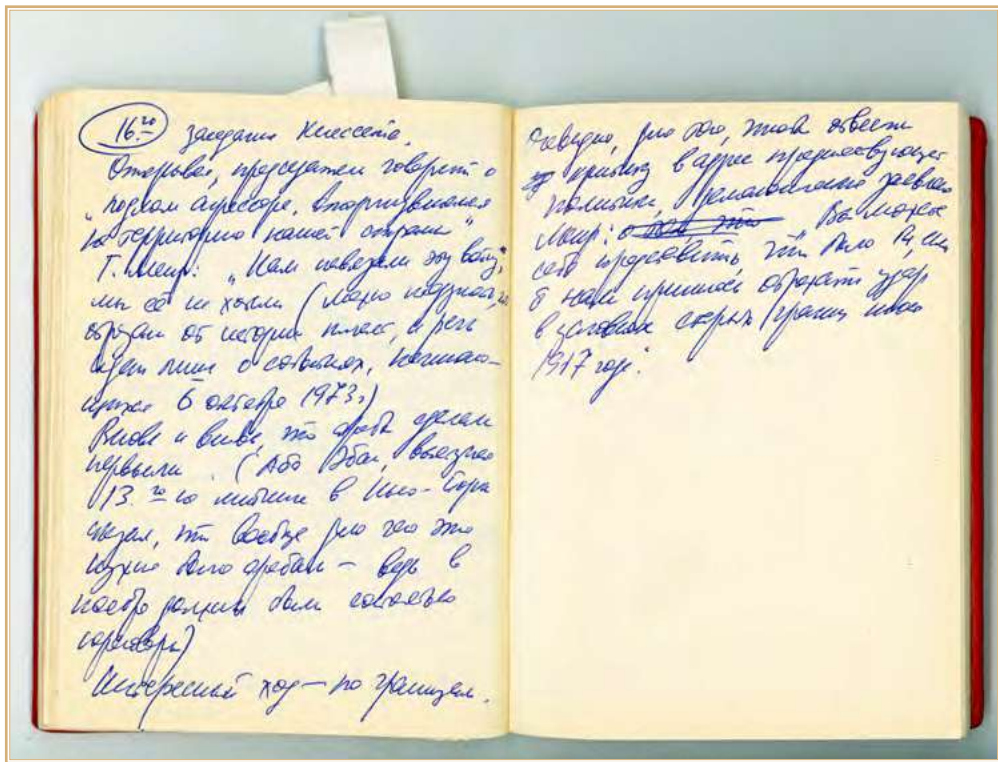 16.20 заседание Кнессета.
Открывая, председатель говорит о
"подлом агрессоре, вторгнувшемся
на территорию нашей страны"
Г. Меир: "Нам навязали эту войну",
мы её не хотели (можно подумать, что
от истории и речь
идет лишь о событиях, начинаю-
щихся 6 октября 1973 г)
Вновь и вновь, что арабы сделали
первыми. (Абба Эбан, выступая
13.20 на митинге в Нью-Йорке
сказал, что вообще для чего это
нужно было арабам — ведь в
ноябре должны были состояться
переговоры)
Интересный ход — по границам.
Очевидно, для того, чтобы отвести
критику в адрес предшествующей
политики, заявила
Меир: Вы можете
себе представить, что было бы, если
б нам пришлось отражать удар
в условиях старых границ июня
1967 года".